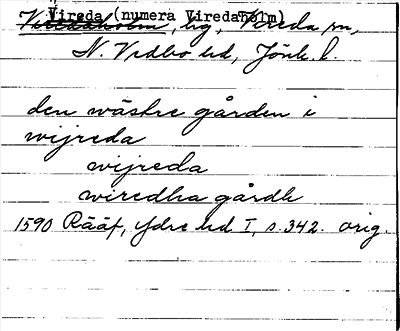 Vireda (numera Viredaholm)
Viredaholm, hg, Vireda sn,
N. Vedbo hd, Jönk. l.
den wästre gården i
wijreda
wijreda
wiredha gårdh
1590 Rääf, Ydre hd I, s. 342. orig.